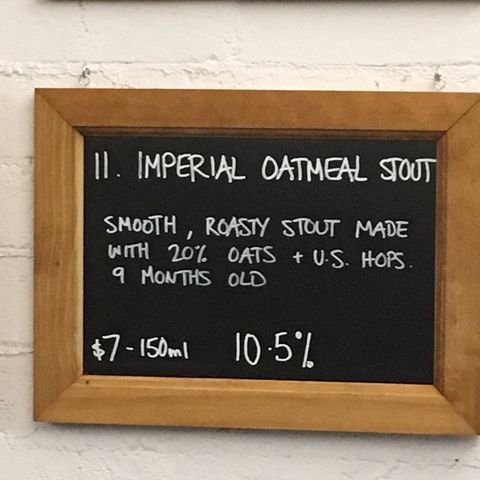 11. IMPERIAL OATMEAL STOUT
SMOOTH, ROASTY STOUT MADE
WITH 20% OATS + U.S. HOPS.
9 MONTHS OLD
$7-150ml 10.5%